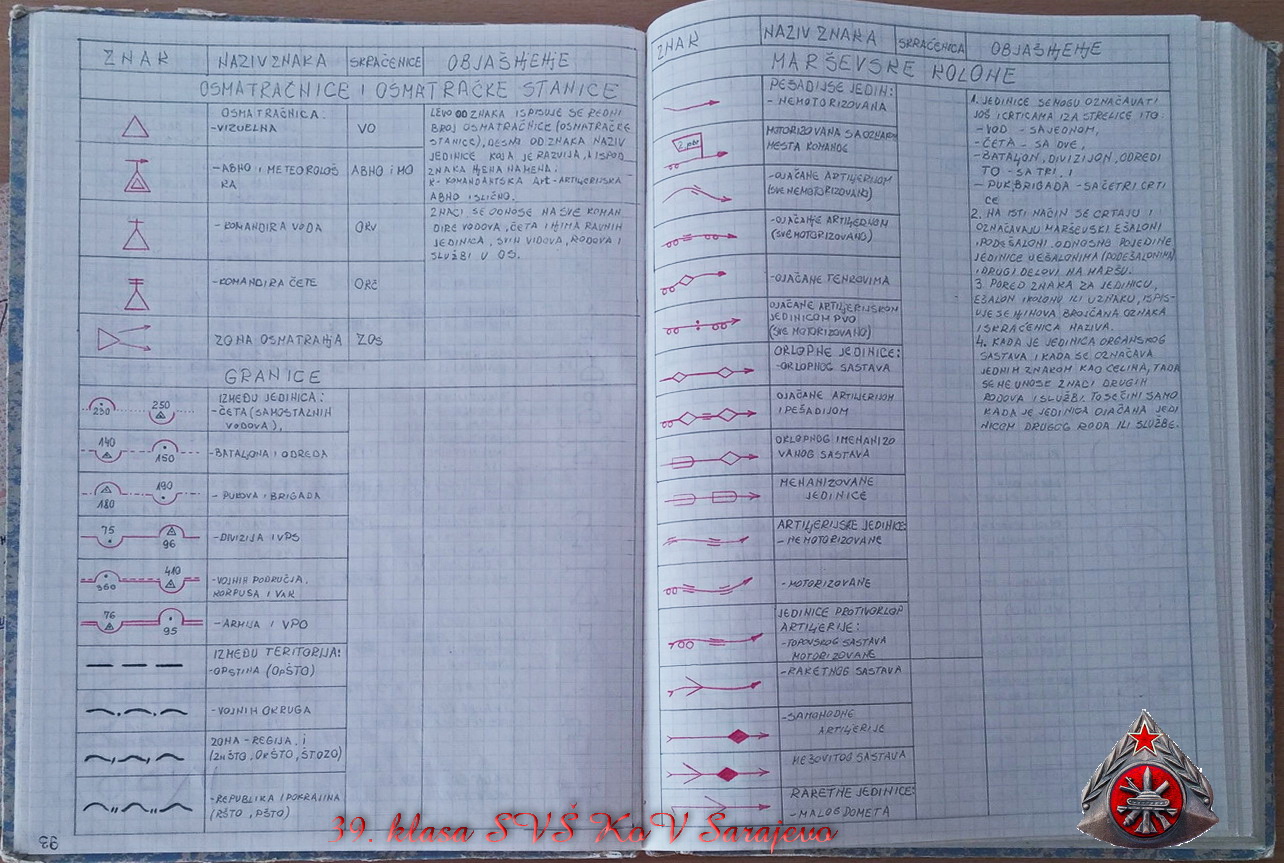 ZNAK NAZIV ZNAKA SKRAĆENICE OBJAŠNJENJE
OSMATRAČNICE I OSMATRAČKE STANICE
OSMATRAČNICA:
-VIZUELNA VO
LEVO OD ZNAKA ISPISUJE SE REDNI
BROJ OSMATRAČNICE (OSMATRAČKE
STANICE), DESNO OD ZNAKA NAZIV
JEDINICE KOJA JE RAZVIJA, A ISPOD
ZNAKA NJENA NAMENA:
K-KOMANDANTSKA ART-ARTILJERIJSKA
ABHO I SLIČNO.
-ABHO I METEOROLOŠ ABHO I MO
KA
-KOMANDIRA VODA ORV
ZNACI SE ODNOSE NA SVE KOMAN
DIRE VODOVA, ČETA I NJIMA RAVNIH
JEDINICA, SVIH VIDOVA, RODOVA I
SLUŽBI U OS.
-KOMANDIRA ČETE ORČ
ZONA OSMATRANJA ZOS
GRANICE
IZMEĐU JEDINICA:
-ČETA (SAMOSTALNIH
VODOVA),
230 250
-BATALJONA I ODREDA
140 150
-PUKOVA I BRIGADA
180 190
-DIVIZIJA I VPS
75 96
-VOJNIH PODRUČJA,
KORPUSA I VAK
360 410
-ARMIJA I VPO
76 95
IZMEĐU TERITORIJA:
-OPŠTINA (OPŠTO)
-VOJNIH OKRUGA
ZONA-REGIJA, I
(ZNŠTO, OKŠTO, ŠTOZO)
-REPUBLIKA I POKRAJINA
(RŠTO, PŠTO)
93
ZNAK NAZIV ZNAKA SKRAĆENICA OBJAŠNJENJE
MARŠEVSKE KOLONE
PEŠADIJSKE JEDIN:
-NEMOTORIZOVANA
MOTORIZOVANA SA OZNAKOM
MESTA KOMANDE
-OJAČANE ARTILJERIJOM
(SVE NEMOTORIZOVANO)
-OJAČANJE ARTILJERIJOM
(SVE MOTORIZOVANO)
-OJAČANE TENKOVIMA
OJAČANE ARTILJERIJSKOM
JEDINICOM PVO
(SVE MOTORIZOVANO)
OKLOPNE JEDINICE:
-OKLOPNOG SASTAVA
OJAČANE ARTILJERIJOM
I PEŠADIJOM
OKLOPNOG I MEHANIZO
VANOG SASTAVA
MEHANIZOVANE
JEDINICE
ARTILJERIJSKE JEDINICE:
-NEMOTORIZOVANE
-MOTORIZOVANE
JEDINICE PROTIVOKLOP
ARTILJERIJE:
-TOPOVSKOG SASTAVA
MOTORIZOVANE
-RAKETNOG SASTAVA
-SAMOHODNE
ARTILJERIJE
MEŠOVITOG SASTAVA
RAKETNE JEDINICE:
-MALOG DOMETA
1. JEDINICE SE MOGU OZNAČAVATI
JOŠ I CRTICAMA IZA STRELICE I TO:
-VOD - SA JEDNOM,
-ČETA - SA DVE,
-BATALJON, DIVIZIJON, ODREDI
TO - SA TRI, I
-PUK, BRIGADA - SA ČETRI CRTI
CE
2. NA ISTI NAČIN SE CRTAJU I
OZNAČAVAJU MARŠEVSKI EŠALONI
, PODEŠALONI, ODNOSNO POJEDINE
JEDINICE U EŠALONIMA (PODEŠALONIMA)
I DRUGI DELOVI NA MARŠU.
3. PORED ZNAKA ZA JEDINICU,
EŠALON I KOLONU ILI U ZNAKU, ISPIS-
UJE SE NJIHOVA BROJČANA OZNAKA
I SKRAĆENICA NAZIVA.
4. KADA JE JEDINICA ORGANSKOG
SASTAVA I KADA SE OZNAČAVA
JEDNIM ZNAKOM KAO CELINA, TADA
SE NE UNOSE ZNACI DRUGIH
RODOVA I SLUŽBI. TO SE ČINI SAMO
KADA JE JEDINICA OJAČANA JEDI
NICOM DRUGOG RODA ILI SLUŽBE.
39. klasa SVŠ KoV Sarajevo